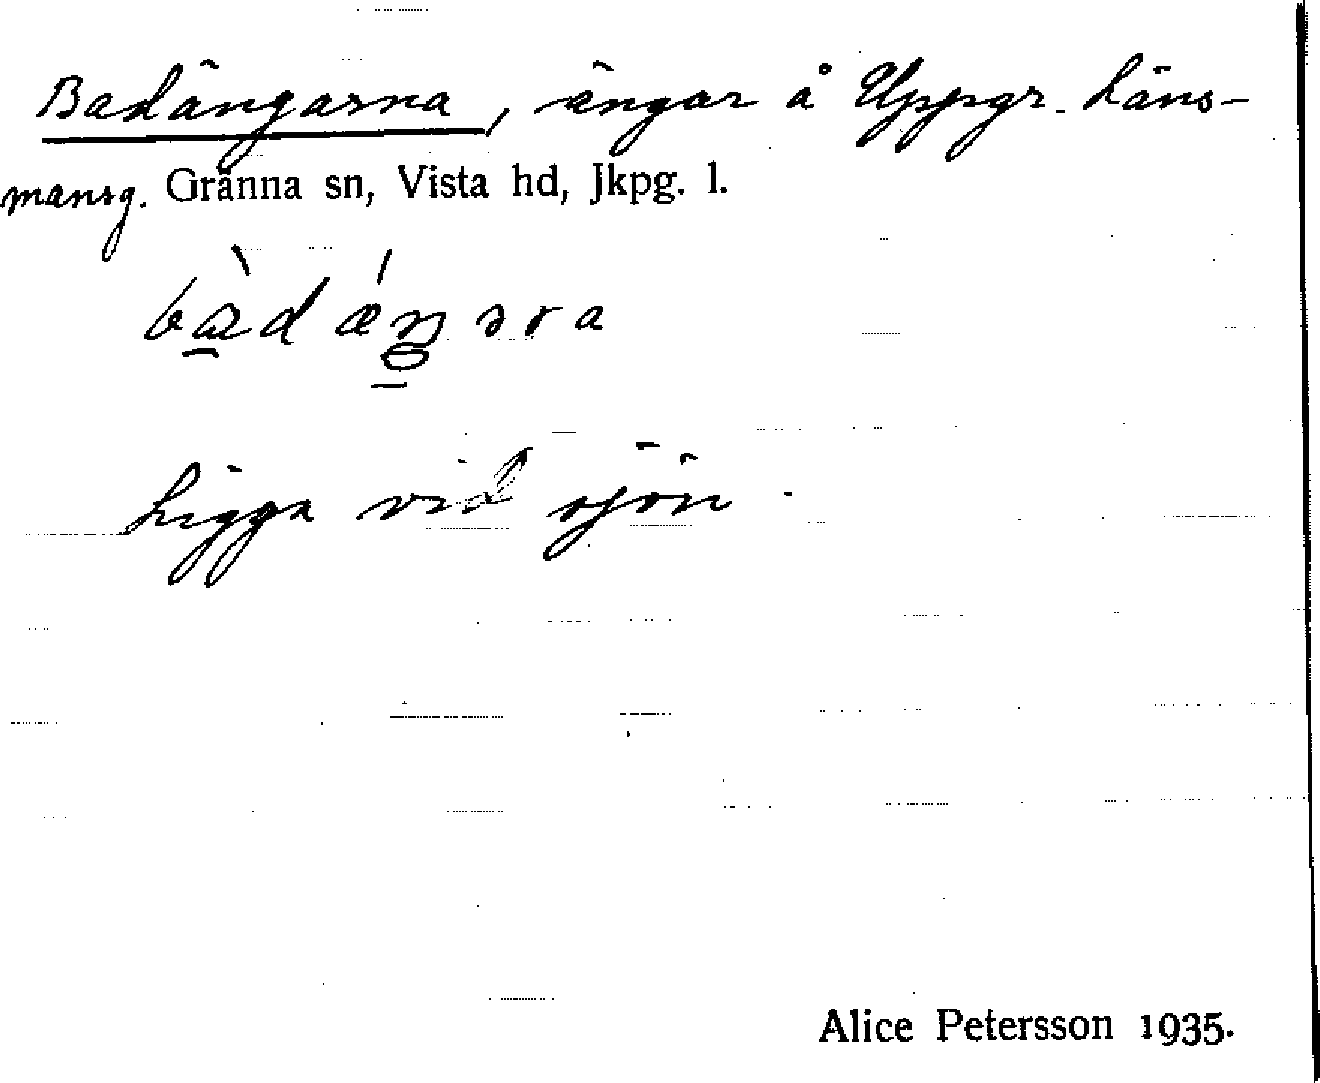 Badängarna, ängar å Uppgr. Läns-
mansg. Gränna sn, Vista hd, Jkpg. l.
bàdǽŋəra
Ligga vid sjön.
Alice Petersson 1935.